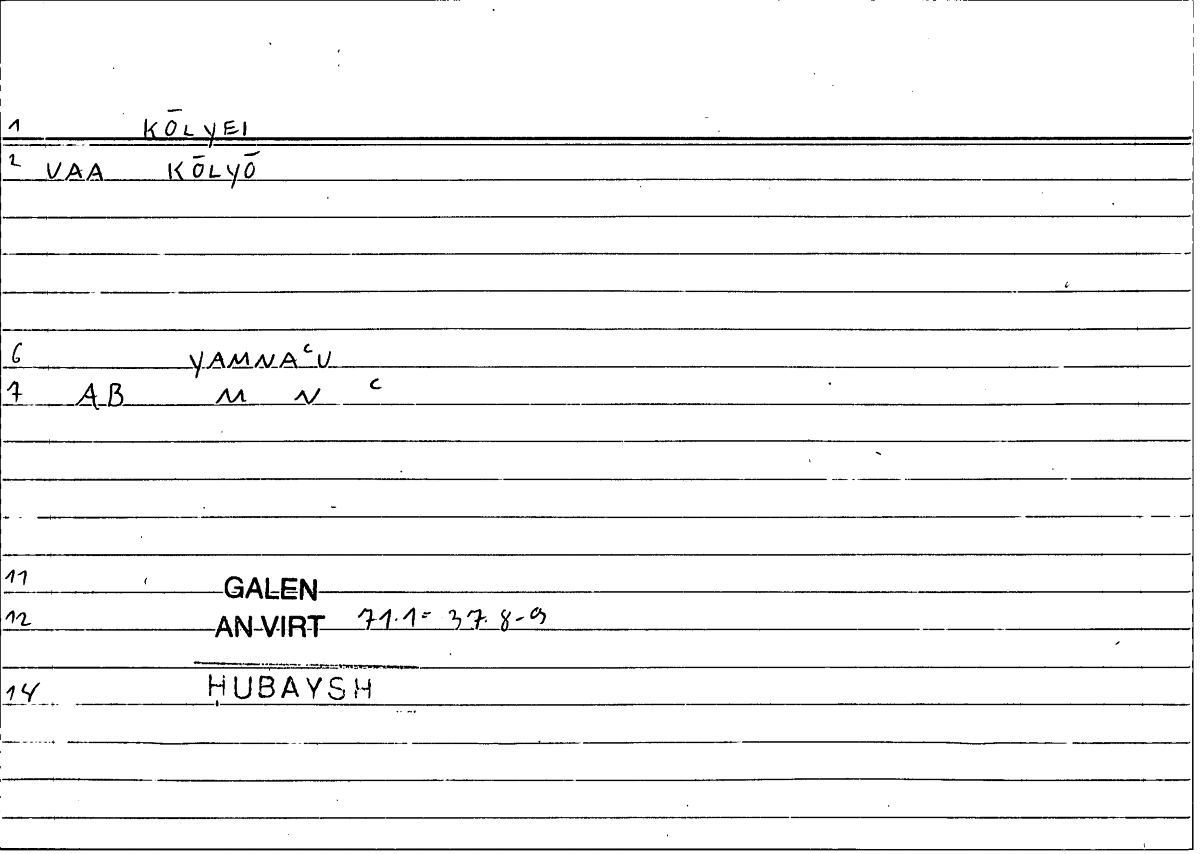 1 KŌLYEI
2 VAA KŌLYŌ
6 YAMNAᶜU
7 AB M N ᶜ
11 GALEN
12 AN VIRT 71.1 = 37.8-9
14 ḤUBAYSH